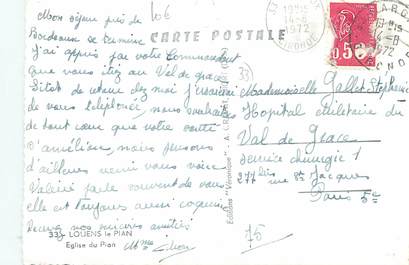 Mon séjour près de
Bordeaux se termine
J'ai appris par votre Commandant
que vous étiez au Val de grace
Sitot de retour chez moi j'essaierai
de vous téléphoner, nous souhaitons
de tout cœur que votre santé
s'améliore, nous pensons
d'ailleurs venir vous voir
Valérie parle souvent de vous
elle est toujours aussi coquine
Recevez nos sincères amitiés
Mme
106
CARTE POSTALE
33
Mademoiselle Gallet Stéphanie
Hopital Militaire du
Val de Grace
service chirurgie 1
277 bis rue St Jacques
Paris 5e
75
Editions "Véronique"
33 - LOUENS le PIAN
Eglise du Pian
14-8
1972
GIRONDE
0,50